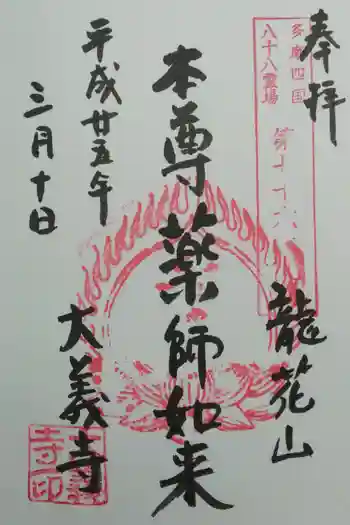 奉拝
多摩四国
八十八霊場
龍花山
本尊薬師如来
平成廿五年
三月十日
大義寺